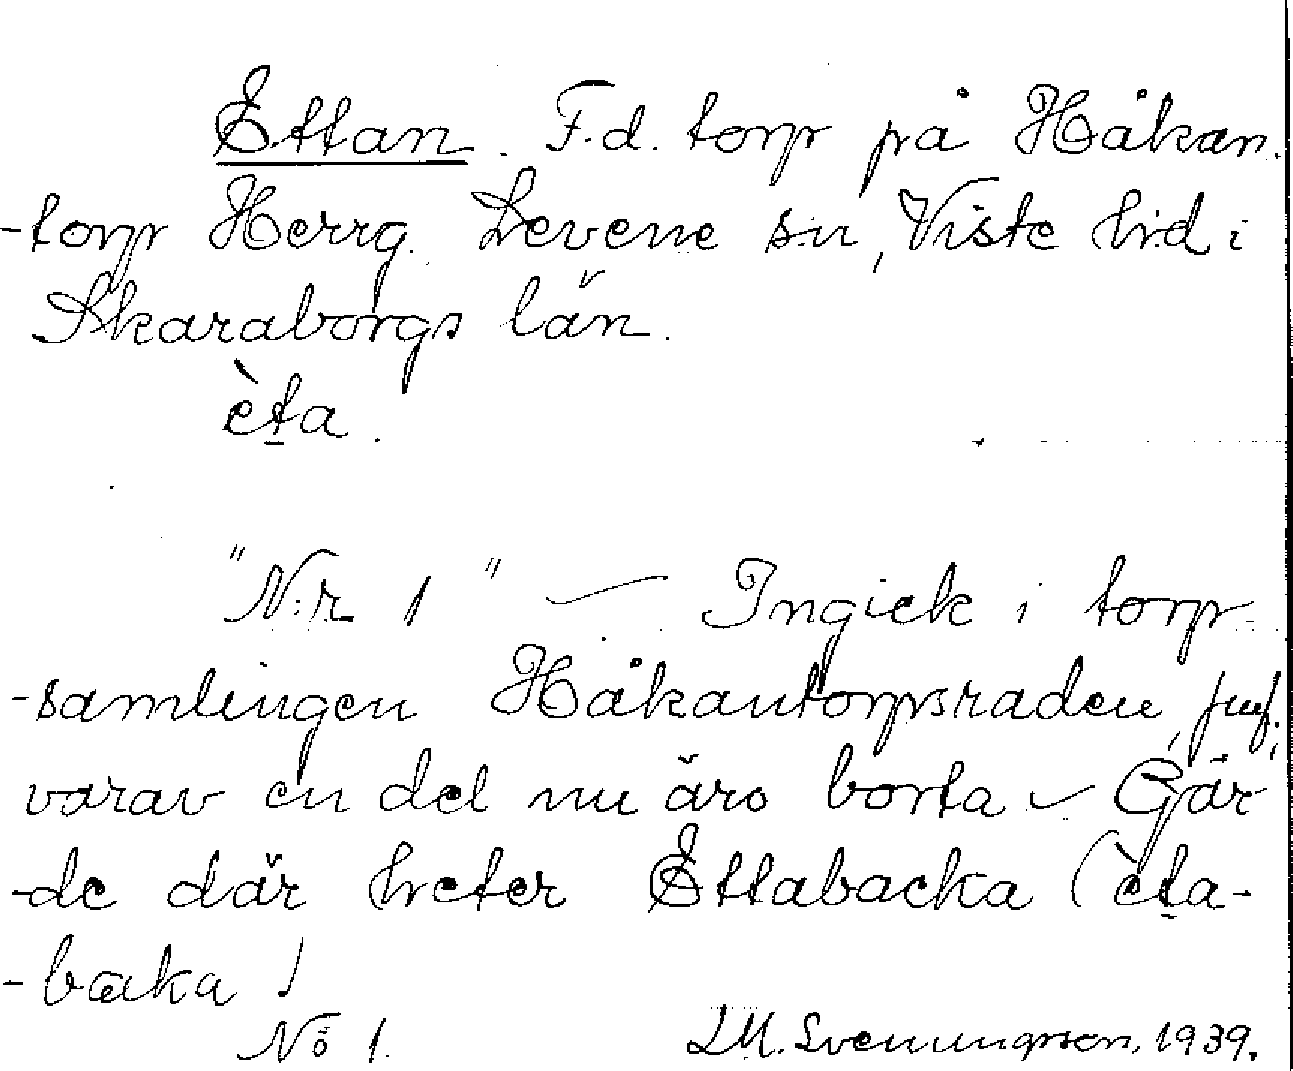 Ettan. F.d. torp på Håkan-
-torp Herrg. Levene sn, Viste hd i
Skaraborgs län.
èta.
"N:r 1" — Ingick i torp-
-samlingen Håkantorpsraden, jmf.,
varav en del nu äro borta — Gär
-de där heter Ettabacka (èta-
-baka)
No 1. S.M. Svenungsson, 1939.